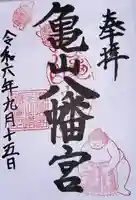 奉拝
亀山八幡宮
令和六年九月十五日